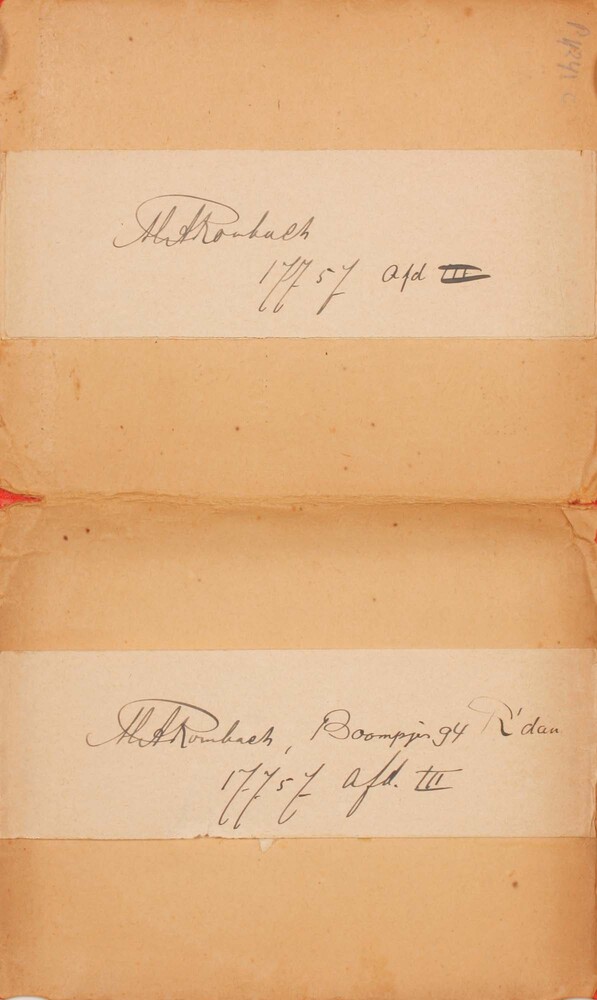 M.A. Rombach
17757 Afd III
M.A. Rombach, Boompjes 94 R'dam
17757 Afd. III